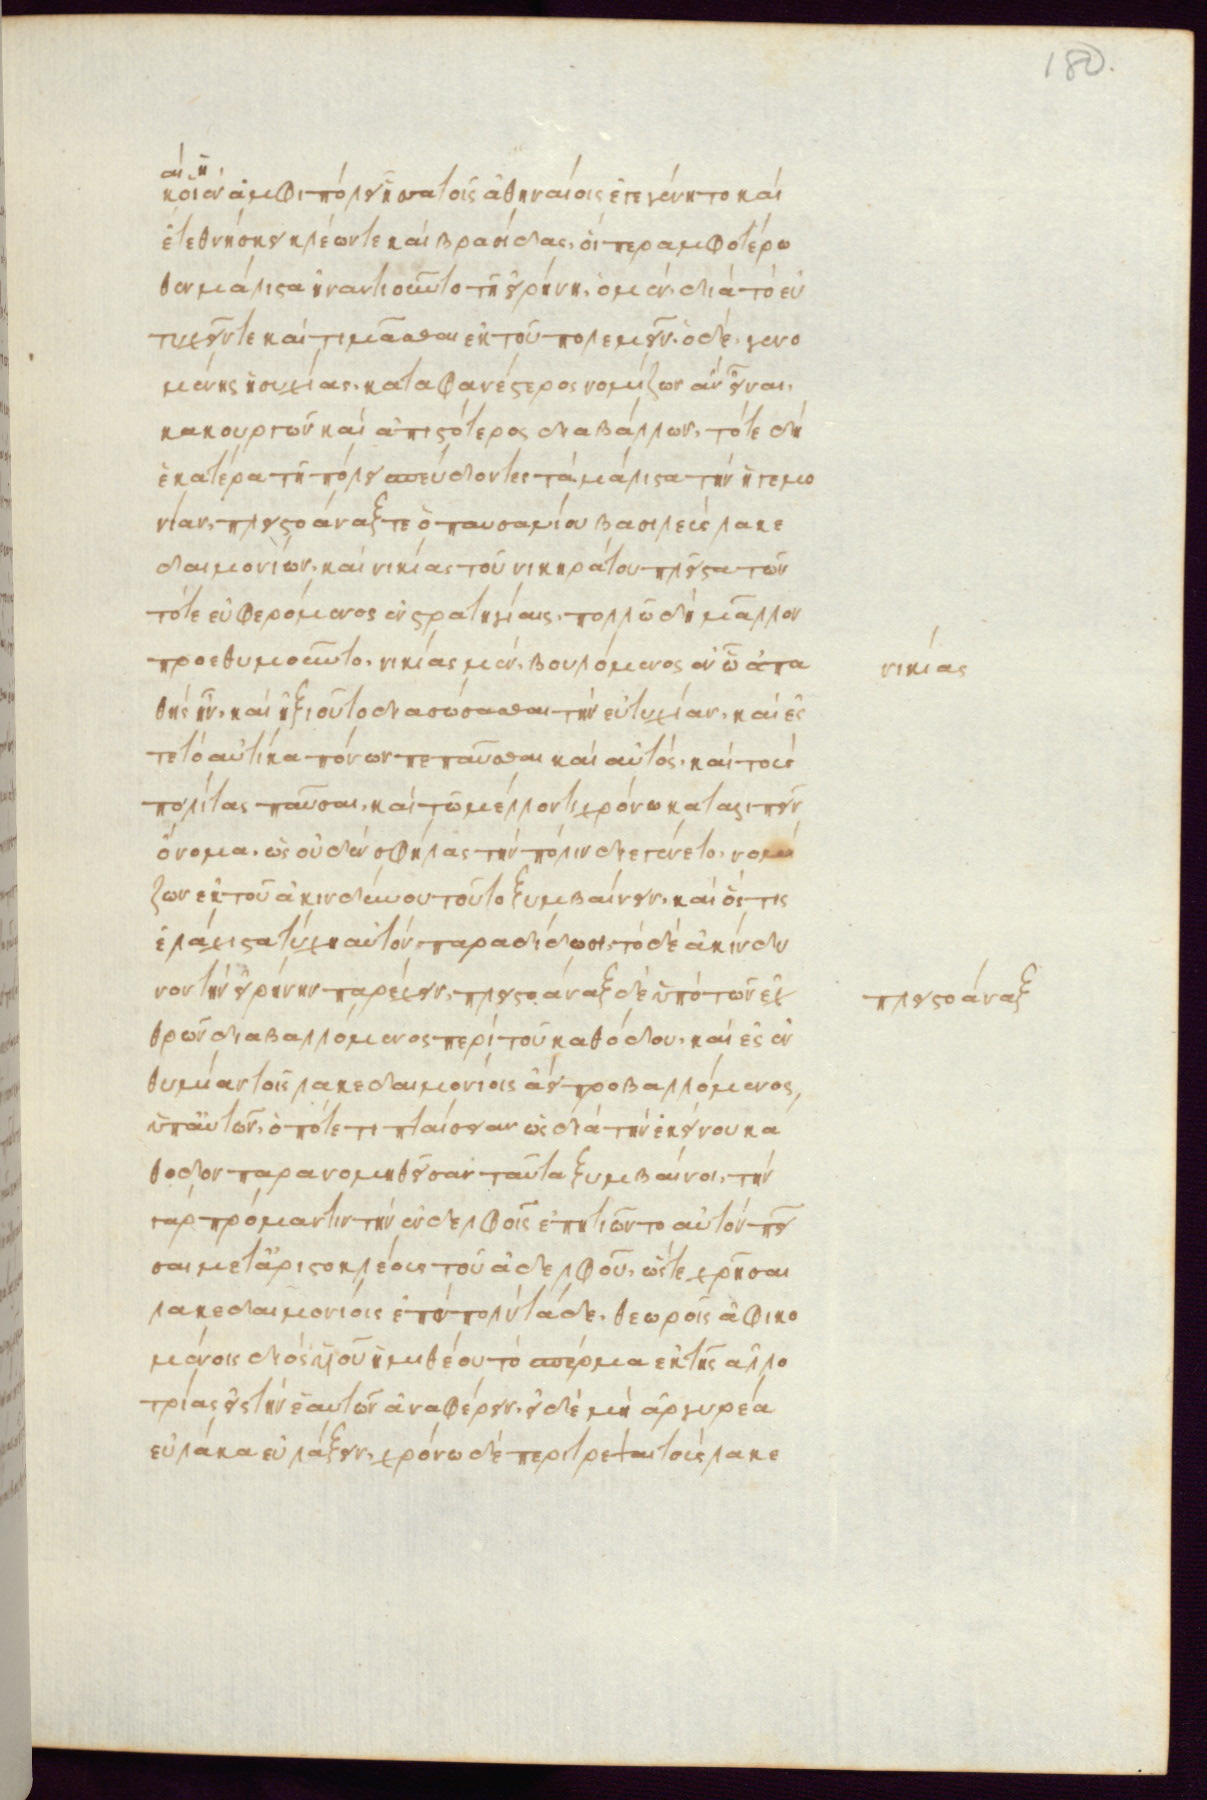 180.
αἱ ἡ
κοὶ ἐν ἀμφιπόλει ἧσσα τοῖς ἀθηναίοις ἐγεγένητο καὶ
ἐτεθνήκει κλέων τε καὶ βρασίδας, οἵπερ ἀμφοτέρω
θεν μάλιστα ἠναντιοῦντο τῇ εἰρήνῃ, ὁ μὲν, διὰ τὸ εὐ
τυχεῖν τε καὶ τιμᾶσθαι ἐκ τοῦ πολεμεῖν, ὁ δὲ, γενο
μένης ἡσυχίας, καταφανέστερος νομίζων ἂν εἶναι,
κακουργῶν καὶ ἀπιστότερος διαβάλλων, τότε δὴ
ἑκατέρα τῇ πόλει σπεύδοντες τὰ μάλιστα τὴν ἡγεμο
νίαν, πλειστοάναξ τε ὁ παυσανίου βασιλεὺς λακε
δαιμονίων, καὶ νικίας τοῦ νικηράτου πλεῖστα τῶν
τότε εὖ φερόμενος ἐν στρατηγίαις, πολλῶ δὴ μᾶλλον
προεθυμοῦντο, νικίας μὲν, βουλόμενος ἐν ὧ ἀπα
νικίας
θὴς ἦν, καὶ ἠξιοῦτο διασώσασθαι τὴν εὐτυχίαν, καὶ ἔς
τε τὸ αὐτίκα πόνων πεπαῦσθαι καὶ αὐτὸς, καὶ τοὺς
πολίτας παῦσαι, καὶ τῶ μέλλοντι χρόνω καταλιπεῖν
ὄνομα, ὡς οὐδὲν σφήλας τὴν πόλιν διεγένετο, νομί
ζων ἐκ τοῦ ἀκινδύνου τοῦτο ξυμβαίνειν, καὶ ὅς τις
ἐλάχιστα τύχη αὐτὸν παραδίδωσι, τὸ δὲ ἀκίνδυ
νον τὴν εἰρήνην παρέχειν, πλειστοάναξ δὲ ὑπὸ τῶν ἐχ
πλειστοάναξ
θρῶν διαβαλλόμενος περὶ τοῦ καθόδου, καὶ ἐς ἐν
θυμίαν τοῖς λακεδαιμονίοις ἀεὶ προβαλλόμενος,
ὑπ' αὐτῶν, ὁπότε τι πταίσειαν ὡς διὰ τὴν ἐκείνου κά
θοδον παρανομηθεῖσαν ταῦτα ξυμβαίνοι, τὴν
γὰρ πρόμαντιν τὴν ἐν δελφοῖς ἐπητιῶντο αὐτὸν πεῖ
σαι μετ' ἀριστοκλέους τοῦ ἀδελφοῦ, ὥστε χρῆσαι
λακεδαιμονίοις ἐπὶ πολὺ τάδε, θεωροῖς ἀφικο
μένοις διὸς υἱοῦ ἡμιθέου τὸ σπέρμα ἐκ τῆς ἀλλο
τρίας εἰς τὴν ἑαυτῶν ἀναφέρειν, εἰ δὲ μὴ ἀργυρέα
εὐλάκα εὐλάξειν, χρόνω δὲ περιτρέψαι τοὺς λακε